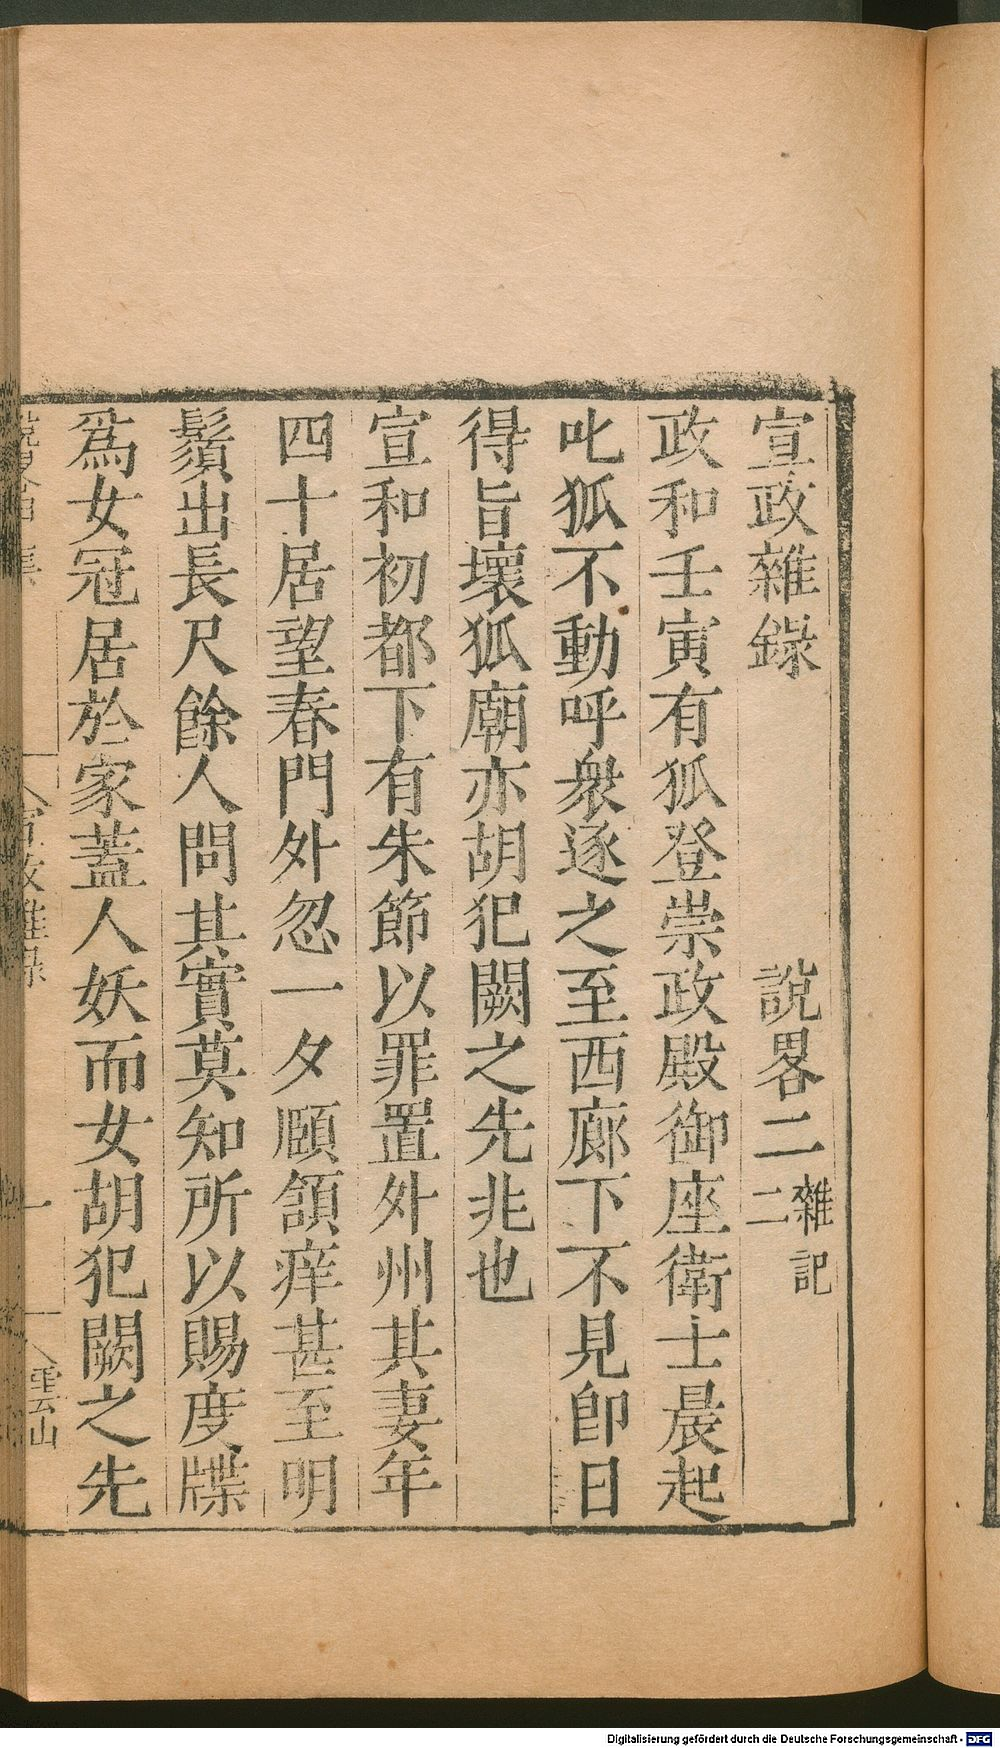 宣政雜錄 說畧二 雜記二
政和壬寅有狐登崇政殿御座衛士晨起
叱狐不動呼衆逐之至西廊下不見卽日
得旨壞狐廟亦胡犯闕之先兆也
宣和初都下有朱節以罪置外州其妻年
四十居望春門外忽一夕頤頷痒甚至明
鬚出長尺餘人問其實莫知所以賜度牒
爲女冠居於家蓋人妖而女胡犯闕之先
宣政雜録 一 雲山
Digitalisierung gefördert durch die Deutsche Forschungsgemeinschaft - DFG